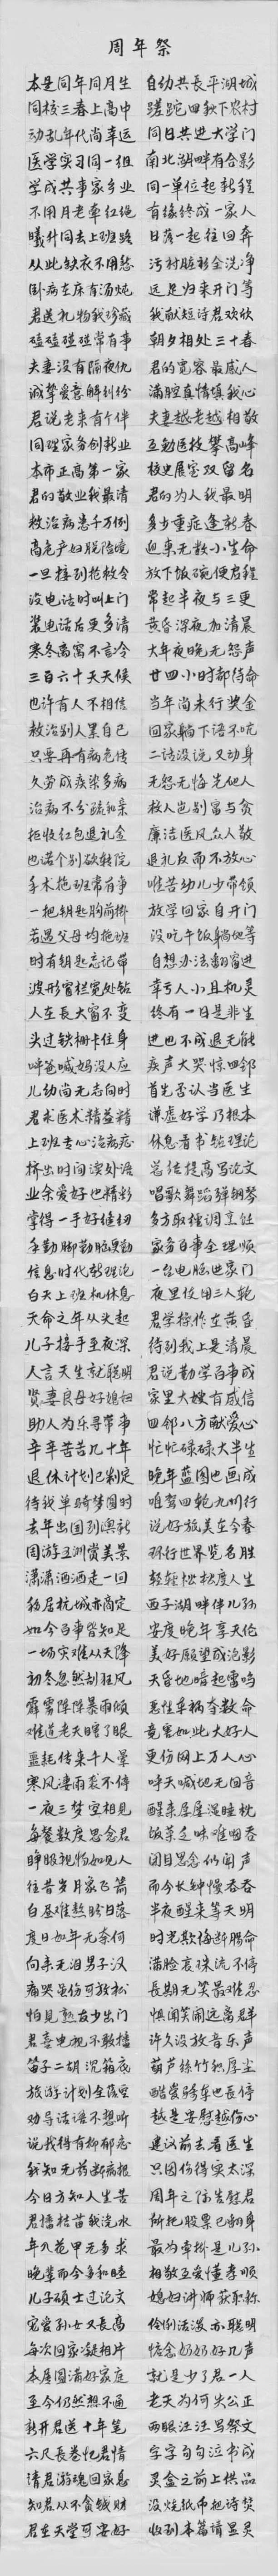 周年祭
本是同年同月生 自幼共长平湖城
同校三春上高中 蹉跎四秋下农村
动乱年代尚幸运 同日共进大学门
医学实习同一组 南北湖畔有合影
学成共事家乡业 同一单位起新程
不用月老牵红绳 有缘终成一家人
曦升同去上班路 日落一起往回奔
从此缺衣不用愁 污衬脏衫全洗净
卧病在床有汤炖 远足归来开门等
君送礼物我珍藏 我献短诗君欢欣
磕磕碰碰常有事 朝夕相处三十春
夫妻没有隔夜仇 君的宽容最感人
诚挚爱意解纠纷 满腔真情慎我心
君说老来有个伴 夫妻越老越相敬
同理家务创新业 互勉医技攀高峰
本市正高第一家 校史展室双留名
君的敬业我最清 君的为人我最明
救治病患千万例 多少重症逢新春
高危产妇脱险境 迎来无数小生命
一旦接到抢救令 放下饭碗便启程
没电话时叫上门 常起半夜与三更
装电话后更多请 黄昏深夜加清晨
寒冬离窝不言冷 大年夜晚无怨声
三百六十天天候 廿四小时都待命
也许有人不相信 当年尚未行奖金
救治别人累自己 回家躺下语不吭
只要再有病危传 二话没说又动身
久劳成疾染多病 无怨无悔先他人
治病不分疏和亲 救人岂别富与贫
拒收红包退礼金 廉洁医风众人敬
也诺个别欲转院 退礼反而不放心
手术拖班常有事 唯苦幼儿少带领
一把钥匙胸前挂 放学回家自开门
若遇父母均拖班 没吃午饭躺地等
时有钥匙忘记带 自想办法翻窗进
波形窗栏宽处钻 幸亏人小且机灵
人在长大窗不变 终有一日是非生
头过铁栅卡住身 进也不成退无能
呼爸喊妈没人应 疾声大哭惊四邻
儿幼尚无志向时 首先否认当医生
君求医术精益精 谦虚好学乃根本
上班专心治病症 休息看书钻理论
挤出时间读外语 总结提高写论文
业余爱好也精彩 唱歌舞蹈弹钢琴
掌得一手好缝纫 多方取种调烹饪
手勤脚勤脑更勤 家务百事全理顺
信息时代新理论 一台电脑进家门
白天上班机休息 夜里使用三人轮
天命之年从头起 君学操作在黄昏
儿子接手至夜深 待到我上是清晨
人言天生就聪明 君说勤学百事成
贤妻良母好媳妇 家里大嫂有威信
助人为乐寻常事 四邻八方献爱心
辛辛苦苦几十年 忙忙碌碌大半生
退休计划已制定 晚年蓝图也画成
待我单骑梦圆时 唯驾四轮九州行
去年出国到澳新 说好旅美在今春
周游五洲赏美景 环行世界览名胜
潇潇洒洒走一回 轻轻松松度人生
移居杭城亦商定 西子湖畔伴儿孙
如今百事皆知足 安度晚年享天伦
一场灾难从天降 美好愿望成泡影
初冬忽然刮狂风 天昏地暗起雷鸣
霹雳阵阵暴雨倾 恶性车祸夺数命
难道老天瞎了眼 竟害如此大好人
噩耗传来千人晕 更伤网上万人心
寒风凄雨哀不停 呼天喊地无回音
一夜三梦空相见 醒来屡屡湿睡枕
每餐数度思念君 饭菜乏味难咽吞
睁眼视物如见人 闭目思念仍闻声
往昔岁月象飞箭 而今长钟慢吞吞
白昼难熬盼日落 半夜醒来等天明
度日如年无奈何 时光欺侮断肠命
向来无泪男子汉 满脸哀珠流不停
痛哭虽伤可放松 长期无笑最难忍
怕见熟友少出门 惧闻笑闹远离群
君喜电视不敢播 许久没放音乐声
笛子二胡沉箱底 葫芦丝竹积厚尘
旅游计划全落空 酷爱骑车也长停
劝导话语不想听 越是安慰越伤心
说我得有抑郁忘 建议前去看医生
我知无药断病根 只因伤得实太深
今日方知人生苦 周年之际告慰君
君播枯苗我浇水 所托股票已翻身
年入花甲无多求 最为牵挂是儿孙
晚辈而今多和睦 相敬互爱懂孝顺
儿子硕士过论文 媳妇讲师获职称
宠爱孙女又长高 伶俐活泼亦聪明
每次回家凝相片 惦念奶奶好几声
本应圆满好家庭 就是少了君一人
至今仍然想不通 老天为何失公正
新开君送十年笔 两眼汪汪写祭文
六尺长卷忆君情 字字句句泣书成
请君游魂回家息 灵盒之前上供品
知君从不贪钱财 没烧纸币把诗焚
君在天堂可安好 收到本篇请显灵